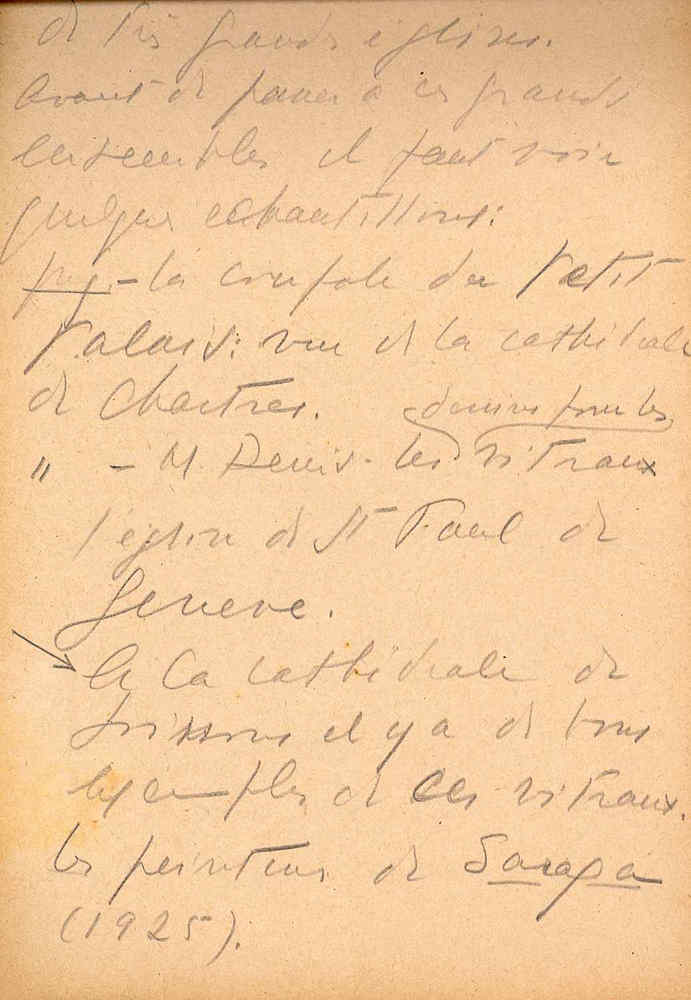 de très grands églises.
Avant de passer à ces grands
ensembles il faut voir
quelques echantillons:
fig. - la coupole du Petit
Palais: vue de la cathédrale
de Chartres. dessins pour les
" - M Denis - les vitraux
l'église de St Paul de
Geneve.
A la cathédrale de
Soissons il y a de bons
exemples de ces vitraux.
les peintures de Sarapa
(1925).